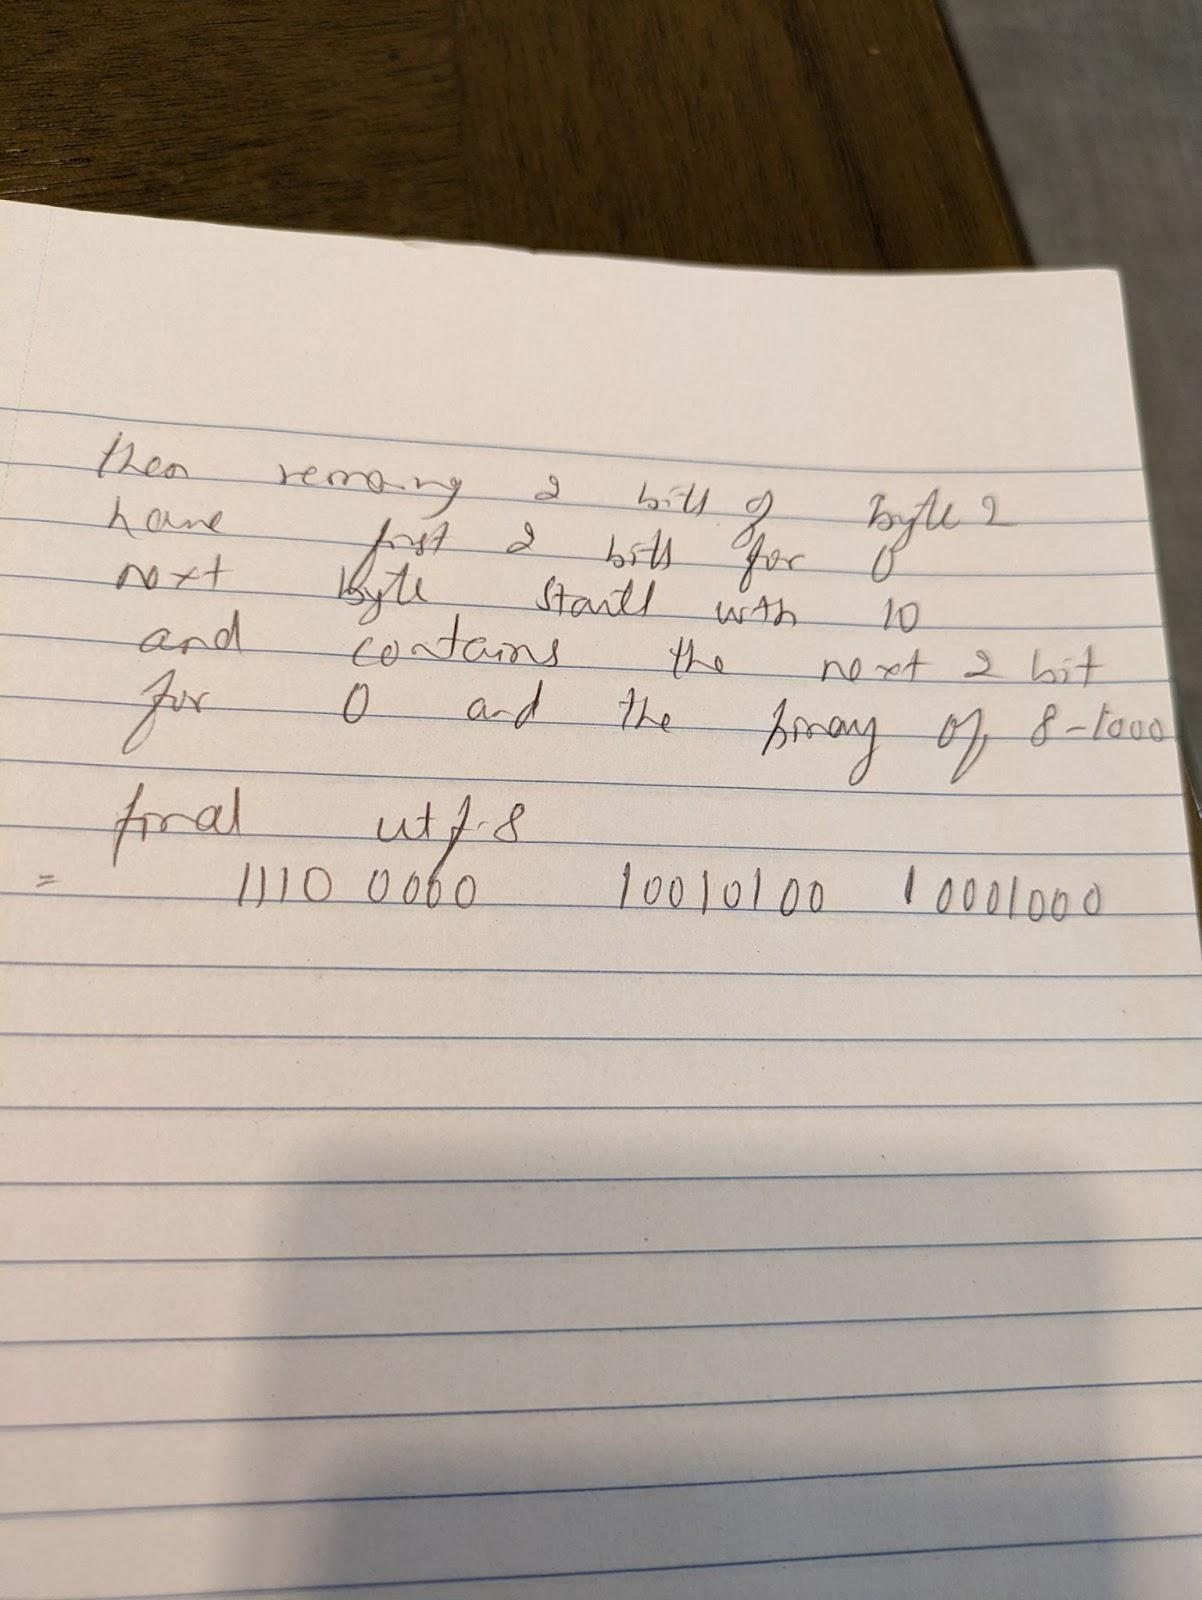 then remaing 2 bits of Byte 2
have first 2 bits for 0
next Byte starts with 10
and contains the next 2 bit
for 0 and the binary of 8-1000
final utf-8
= 1110 0000 10010100 10001000